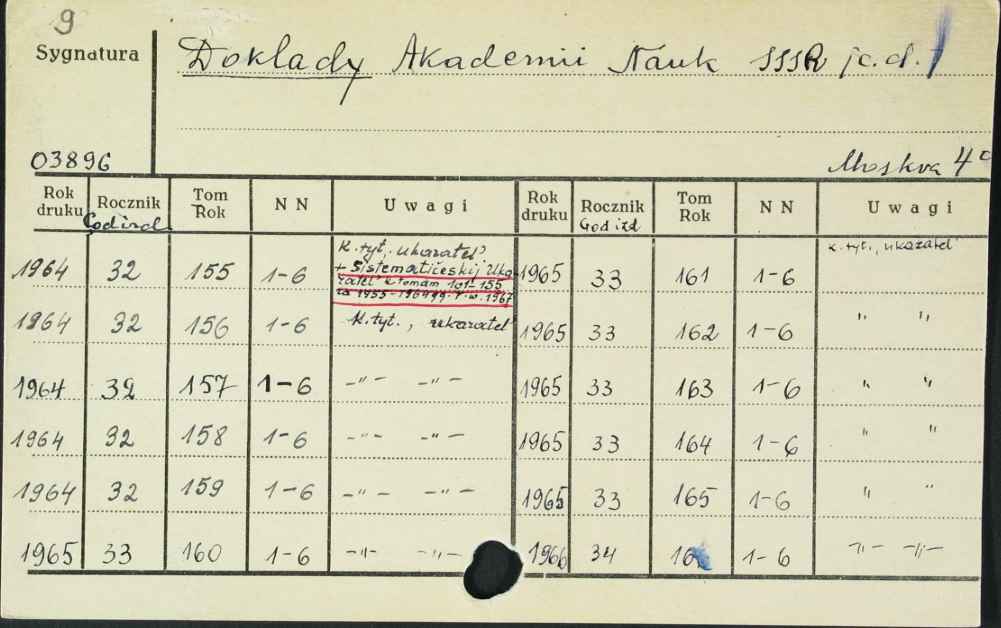 9
Sygnatura
Doklady Akademii Nauk SSSR /c.d./
03896
Moskva 4°
Rok druku Rocznik Tom Rok NN Uwagi Rok druku Rocznik Tom Rok NN Uwagi
God izd. God izd
1964 32 155 1-6 K. tyt., ukazatel' 1965 33 161 1-6 K. tyt., ukazatel'
+ Sistematičeskij Uka-
zatel' k tomam 101-155
za 1955-1964 gg. r. w. 1967
1964 32 156 1-6 K. tyt., ukazatel' 1965 33 162 1-6 " "
1964 32 157 1-6 -"- -"- 1965 33 163 1-6 " "
1964 32 158 1-6 -"- -"- 1965 33 164 1-6 " "
1964 32 159 1-6 -"- -"- 1965 33 165 1-6 " "
1965 33 160 1-6 -"- -"- 1966 34 1-6 -"- -"-